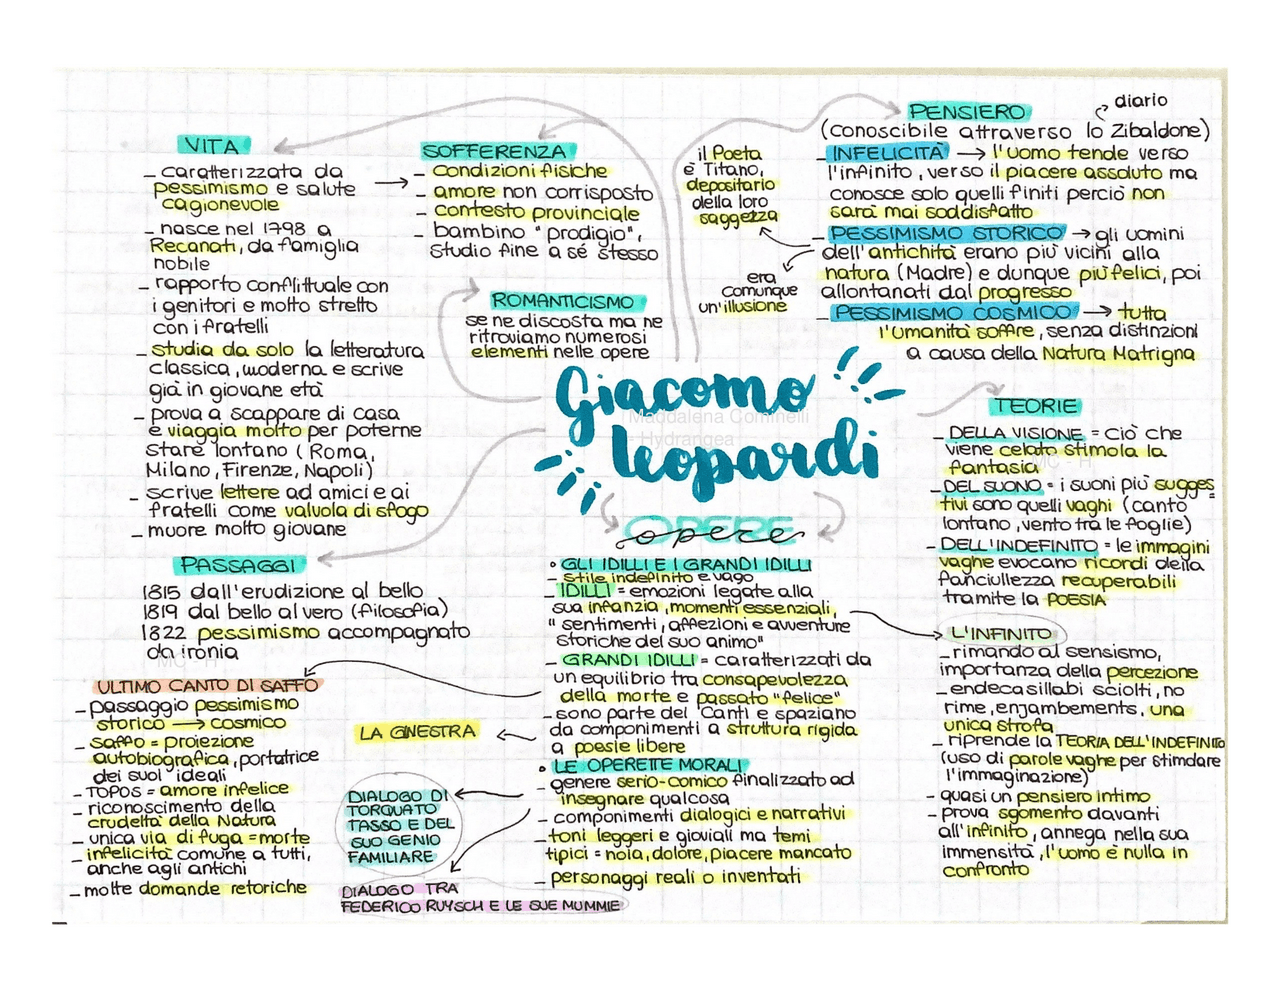 VITA
- caratterizzata da
pessimismo e salute
cagionevole
- nasce nel 1798 a
Recanati, da famiglia
nobile
- rapporto conflittuale con
i genitori e molto stretto
con i fratelli
- studia da solo la letteratura
classica, moderna e scrive
già in giovane età
- prova a scappare di casa
e viaggia molto per poterne
stare lontano (Roma,
Milano, Firenze, Napoli)
- scrive lettere ad amici e ai
fratelli come valvola di sfogo
- muore molto giovane
SOFFERENZA
- condizioni fisiche
- amore non corrisposto
- contesto provinciale
- bambino "prodigio",
studio fine a sé stesso
ROMANTICISMO
se ne discosta ma ne
ritroviamo numerosi
elementi nelle opere
PENSIERO
diario
(conoscibile attraverso lo Zibaldone)
- INFELICITÀ → l'uomo tende verso
l'infinito, verso il piacere assoluto ma
conosce solo quelli finiti perciò non
sarà mai soddisfatto
- PESSIMISMO STORICO → gli uomini
dell'antichità erano più vicini alla
natura (Madre) e dunque più felici, poi
allontanati dal progresso
- PESSIMISMO COSMICO → tutta
l'umanità soffre, senza distinzioni
a causa della Natura Matrigna
il Poeta
è Titano,
depositario
della loro
saggezza
era
comunque
un'illusione
Giacomo
Leopardi
Maddalena Cominelli
- Hydrangea
TEORIE
- DELLA VISIONE = ciò che
viene celato stimola la
fantasia
MC - H
- DEL SUONO = i suoni più sugges
tivi sono quelli vaghi (canto
lontano, vento tra le foglie)
- DELL'INDEFINITO = le immagini
vaghe evocano ricordi della
fanciullezza recuperabili
tramite la POESIA
PASSAGGI
1815 dall'erudizione al bello
1819 dal bello al vero (filosofia)
1822 pessimismo accompagnato
da ironia
MC - H
OPERE
opere
• GLI IDILLI E I GRANDI IDILLI
- stile indefinito e vago
- IDILLI = emozioni legate alla
sua infanzia, momenti essenziali,
" sentimenti, affezioni e avventure
storiche del suo animo"
- GRANDI IDILLI = caratterizzati da
un equilibrio tra consapevolezza
della morte e passato "felice"
- sono parte dei "Canti e spaziano
da componimenti a struttura rigida
a poesie libere
• LE OPERETTE MORALI
- genere serio-comico finalizzato ad
insegnare qualcosa
- componimenti dialogici e narrativi
- toni leggeri e gioviali ma temi
tipici = noia, dolore, piacere mancato
- personaggi reali o inventati
L'INFINITO
- rimando al sensismo,
importanza della percezione
- endecasillabi sciolti, no
rime, enjambements, una
unica strofa
- riprende la TEORIA DELL'INDEFINITO
(uso di parole vaghe per stimolare
l'immaginazione)
- quasi un pensiero intimo
- prova sgomento davanti
all'infinito, annega nella sua
immensità, l'uomo è nulla in
confronto
ULTIMO CANTO DI SAFFO
- passaggio pessimismo
storico → cosmico
- Saffo = proiezione
autobiografica, portatrice
dei suoi ideali
- TOPOS = amore infelice
- riconoscimento della
crudeltà della Natura
- unica via di fuga = morte
- infelicità comune a tutti,
anche agli antichi
- molte domande retoriche
LA GINESTRA
DIALOGO DI
TORQUATO
TASSO E DEL
SUO GENIO
FAMILIARE
DIALOGO TRA
FEDERICO RUYSCH E LE SUE MUMMIE